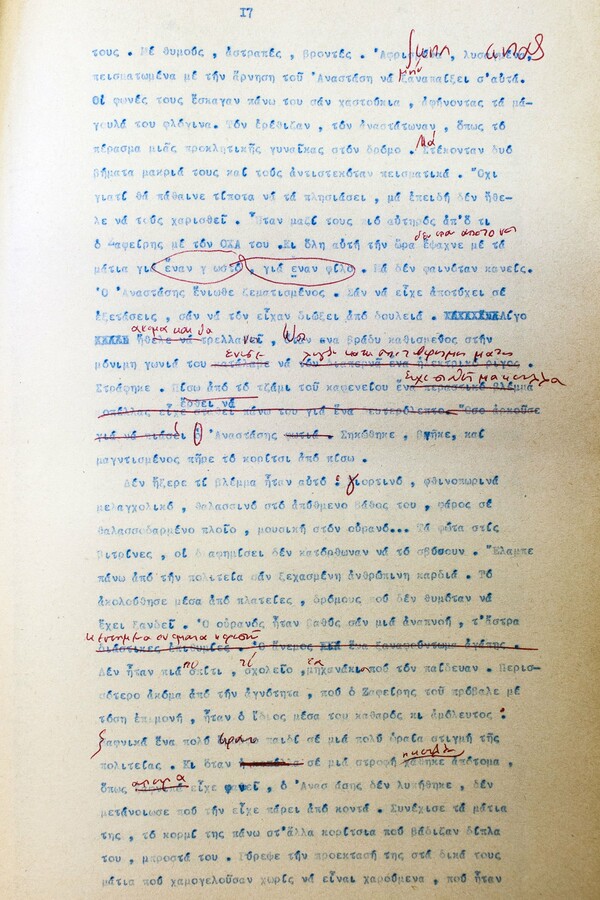 17
τους . Μέ θυμούς , ἀστραπές , βροντές . Ἀφρισμένα , λυσσασμένα,
πεισματωμένα μέ τήν ἄρνηση τοῦ Ἀναστάση νά ξαναπαίξει σ'αὐτά.
Οἱ φωνές τους ἔσκαγαν πάνω του σάν χαστούκια , ἀφήνοντας τά μά-
γουλά του φλόγινα. Τόν ἐρέθιζαν , τόν ἀναστάτωναν , ὅπως τό
πέρασμα μιᾶς προκλητικῆς γυναίκας στόν δρόμο . Μά στέκονταν δυό
βήματα μακριά τους καί τούς ἀντιστεκόταν πεισματικά . Ὄχι
γιατί θά πάθαινε τίποτα νά τά πλησιάσει , μά ἐπειδή δέν ἤθε-
λε νά τούς χαρισθεῖ . Ἦταν μαζί τους πιό αὐτηρός ἀπ'ὅ τι
ὁ Ζαφείρης μέ τόν ΟΧΑ του .Κι ὅλη αὐτή τήν ὥρα ἔψαχνε μέ τά
μάτια γιά ἕναν γνωστό , γιά ἕναν φίλο . Μά δέν φαινόταν κανείς.
Ὁ Ἀναστάσης ἔνιωθε ξεμετισμένος . Σάν νά εἶχε ἀποτύχει σέ
ἐξετάσεις , σάν νά τόν εἶχαν διώξει ἀπό δουλειά . Λίγο
ἀκόμα καί θά
ἤθελε νά τρελλαινό , ἕνα βράδυ καθισμένος στήν
μόνιμη γωνιά του κατάλαβε νά τόν διαπερνᾶ ἕνα ἠλεκτρικό ρίγος .
Στράφηκε . Πίσω ἀπό τό τζάμι τοῦ καφενείου ἕνα περαστικό βλέμμα
ἔρθει νά
κοπέλλας εἶχε πάνω του γιά ἕνα δευτερόλεπτο. Ὅσο ἀρκοῦσε
γιά νά πιάσει ὁ Ἀναστάσης φωτιά . Σηκώθηκε , βγῆκε, καί
μαγνητισμένος πῆρε τό κορίτσι ἀπό πίσω .
Δέν ἤξερε τί βλέμμα ἦταν αὐτό : γιορτινό , φθινοπωρινά
μελαγχολικό , θαλασσινό στό ἀπύθμενο βάθος του , φάρος σέ
θαλασσοδαρμένο πλοῖο , μουσική στόν οὐρανό... Τά φῶτα στίς
βιτρίνες , οἱ διαφημίσει δέν κατόρθωναν νά τό σβύσουν . Ἔλαμπε
πάνω ἀπό τήν πολιτεία σάν ξεχασμένη ἀνθρώπινη καρδιά . Τό
ἀκολούθησε μέσα ἀπό πλατεῖες , δρόμους πού δέν θυμόταν νά
ἔχει ξανδεῖ . Ὁ οὐρανός ἦταν βαθύς σάν μιά ἀναπνοή , τ'ἄστρα
διάστικες ἐπιθυμίες . Ὁ ἄνεμος ἕνα ἀγάπης .
Δέν ἦταν πιά σπίτι , σχολεῖο , μηχανάκι πού τόν παίδευαν . Περισ-
σότερο ἀκόμα ἀπό τήν ἁγνότητα , πού ὁ Ζαφείρης τοῦ πρόβαλε μέ
τόση ἐπιμονή , ἦταν ὁ ἴδιος μέσα του καθαρός κι ἀμόλευτος :
ξαφνικά ἕνα πολύ ὡραῖο παιδί σέ μιά πολύ ὡραία στιγμή τῆς
πολιτείας . Κι ὅταν ἡ κοπέλλα σέ μιά στροφή χάθηκε ἀπότομα ,
ὅπως ξαφνικά εἶχε φανεῖ , ὁ Ἀναστάσης δέν λυπήθηκε , δέν
μετάνοιωσε πού τήν εἶχε πάρει ἀπό κοντά . Συνέχισε τά μάτια
της , τό κορμί της πάνω στ'ἄλλα κορίτσια πού βάδιζαν δίπλα
του , μπροστά του . Γύρεψε τήν προεκτασή της στά δικά τους
μάτια πού χαμογελοῦσαν χωρίς νά εἶναι χαρούμενα , πού ἦταν